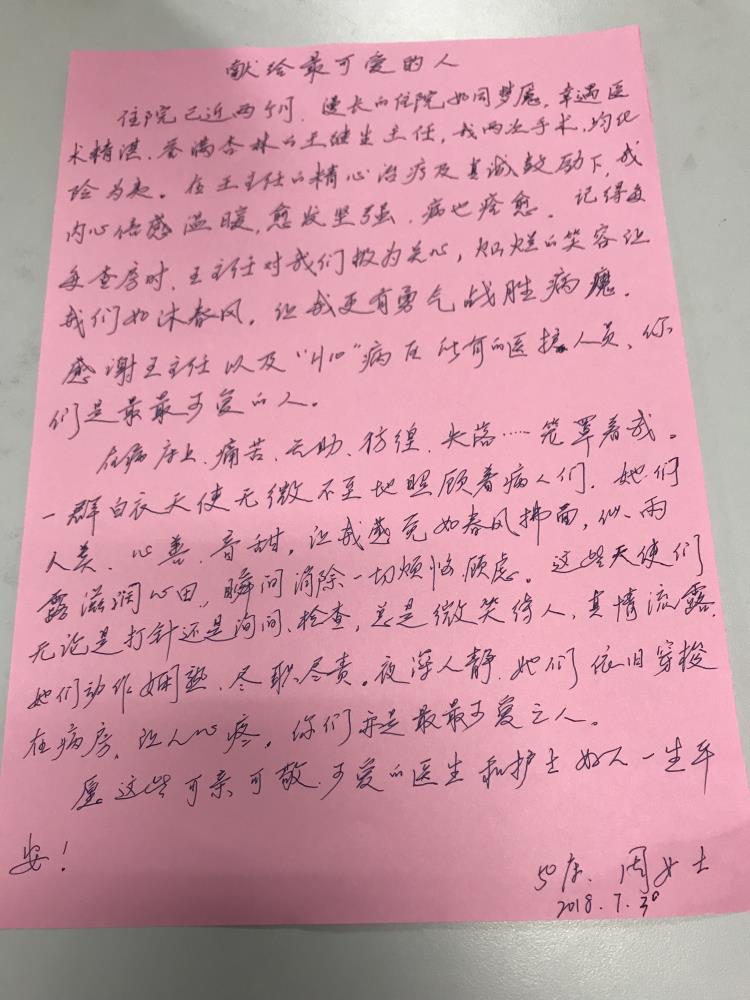 献给最可爱的人
住院已近两个月，漫长的住院如同梦魇，幸遇医
术精湛、誉满杏林的王继生主任，我两次手术，均化
险为夷。在王主任的精心治疗及真诚鼓励下，我
内心倍感温暖，愈发坚强，病也痊愈。记得每
每查房时，王主任对我们极为关心，灿烂的笑容让
我们如沐春风，让我更有勇气战胜病魔。
感谢王主任以及“H10”病区所有的医护人员，你
们是最最可爱的人。
在病床上，痛苦、无助、彷徨、失落……笼罩着我。
一群白衣天使无微不至地照顾着病人们，她们
人美、心善、音甜，让我感觉如春风拂面，似雨
露滋润心田，瞬间消除一切烦恼顾虑。这些天使们
无论是打针还是询问、检查，总是微笑待人，真情流露，
她们动作娴熟、尽职尽责。夜深人静，她们依旧穿梭
在病房，让人心疼。你们亦是最最可爱之人。
愿这些可亲、可敬、可爱的医生和护士好人一生平
安！
50床 周女士
2018.7.30